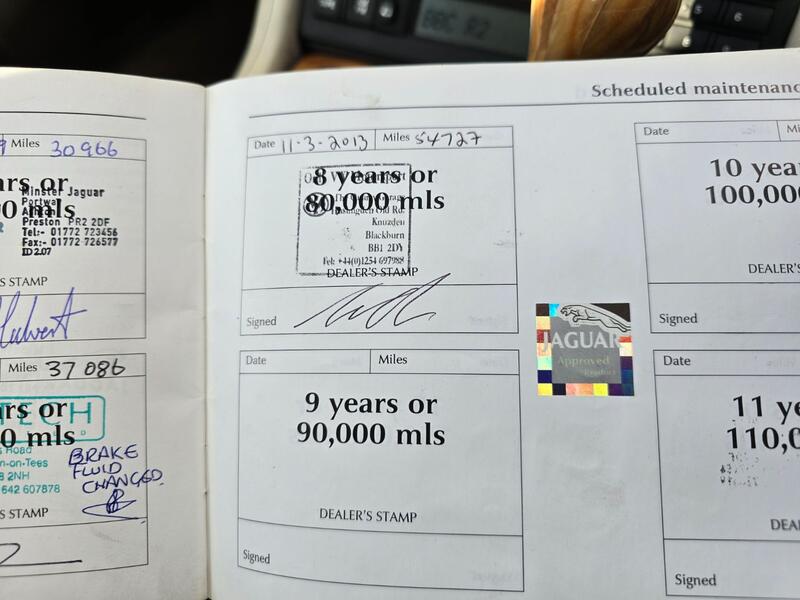 BBC R2
6
6
Scheduled maintenanc
9 Miles 30966
ars or
0 mls
Minster Jaguar
Portway
Preston PR2 2DF
Tel:- 01772 723456
Fax:- 01772 726577
ID2.07
S STAMP
Miles 37086
TECH
ars or
0 mls
s Road
n-on-Tees
8 2NH
642 607878
BRAKE
FLUID
CHANGED
S STAMP
Date 11-3-2013 Miles 54727
8 years or
80,000 mls
Old Rd.
Knuzden
Blackburn
BB1 2DY
Tel: +44(0)1254 697988
DEALER'S STAMP
Signed
Date Miles
9 years or
90,000 mls
DEALER'S STAMP
Signed
JAGUAR
Approved
Product
Date Mi
10 yea
100,00
DEALER'S
Signed
Date
11 ye
110,0
DEA
Signed